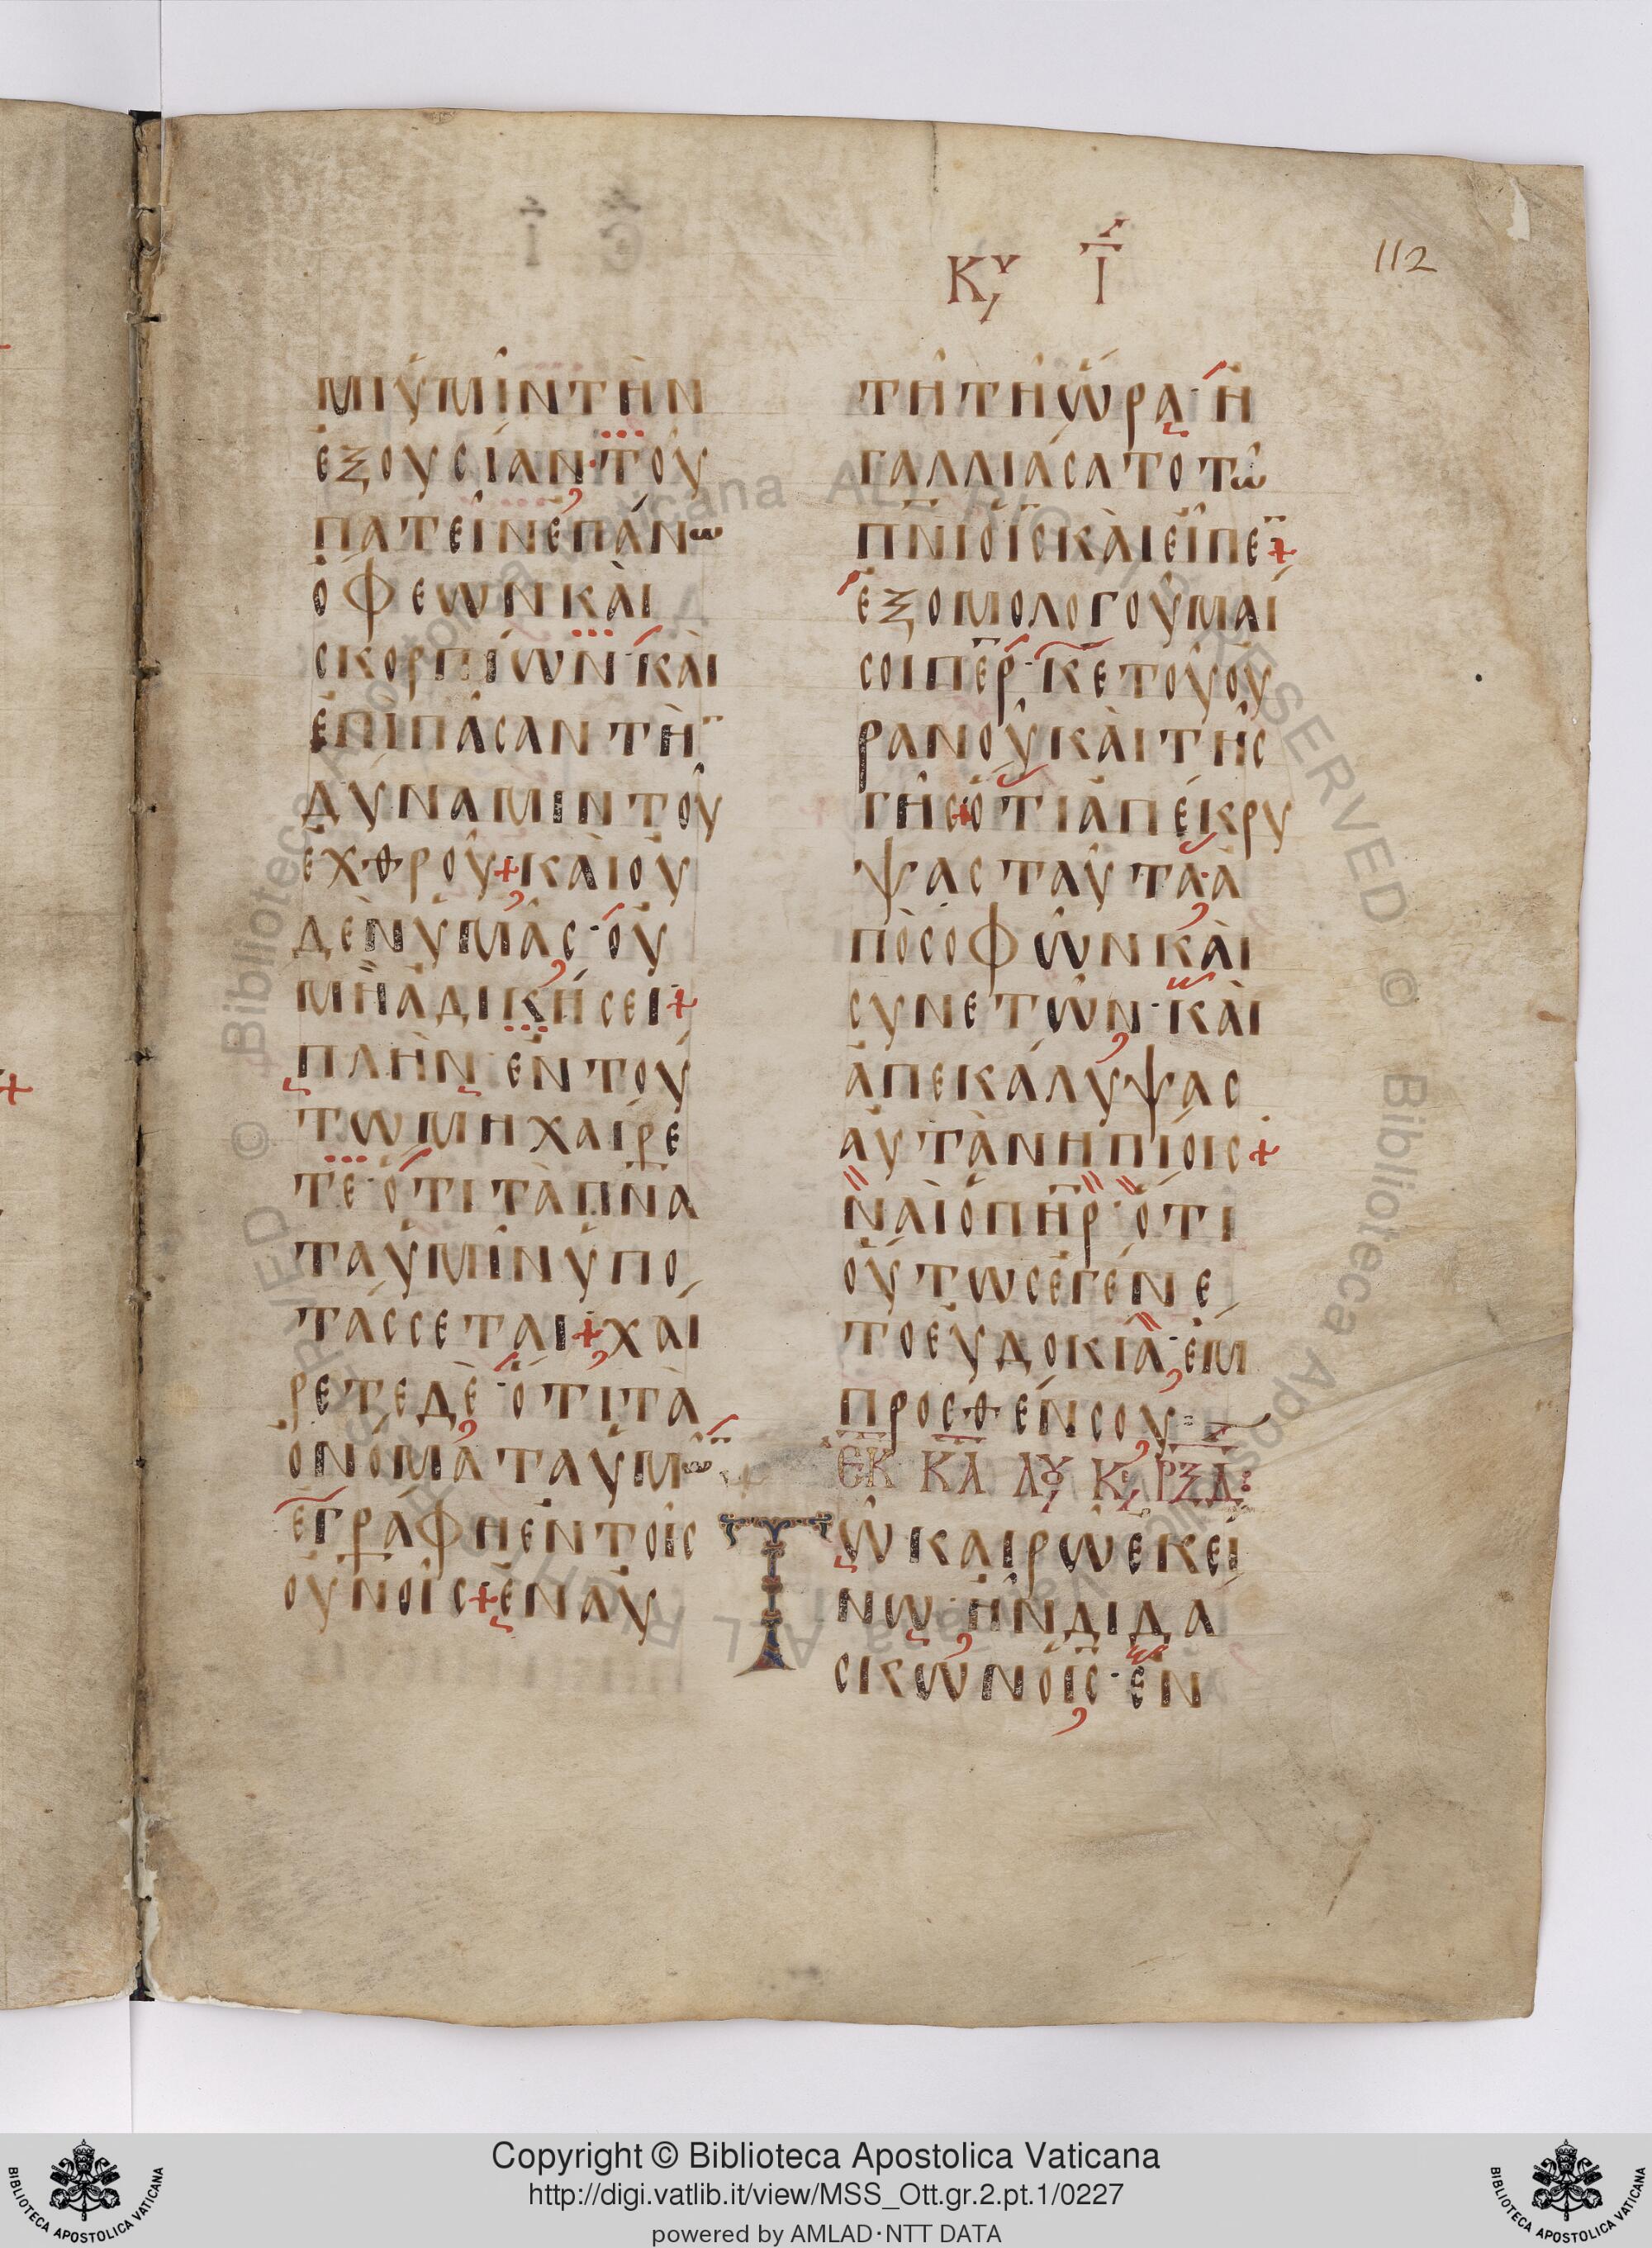 Κ,Υ Ι
112
ΜΙ ΥΜΙΝ ΤΗΝ
ΕΞΟΥΣΙΑΝ· ΤΟΥ
ΠΑΤΕΙΝ ΕΠΑΝω
ΟΦΕΩΝ ΚΑΙ
ΣΚΟΡΠΙΩΝ· ΚΑΙ
ΕΠΙ ΠΑΣΑΝ ΤΗ̄
ΔΥΝΑΜΙΝ ΤΟΥ
ΕΧΘΡΟΥ + ΚΑΙ ΟΥ
ΔΕΝ ΥΜΑΣ· ΟΥ
ΜΗ ΑΔΙΚΗΣΕΙ +
ΠΛΗΝ ΕΝ ΤΟΥ
ΤΩ ΜΗ ΧΑΙΡΕ
ΤΕ· ΟΤΙ ΤΑ ΠΝΑ
ΤΑ ΥΜΙΝ ΥΠΟ
ΤΑΣΣΕΤΑΙ + ΧΑΙ
ΡΕΤΕ ΔΕ· ΟΤΙ ΤΑ
ΟΝΟΜΑΤΑ ΥΜω̄
ΕΓΡΑΦΗ ΕΝ ΤΟΙΣ
ΟΥΝΟΙΣ + ΕΝ ΑΥ
ΤΗ ΤΗ ΩΡΑ· Η
ΓΑΛΛΙΑΣΑΤΟ Τω
ΠΝΙ Ο ΙΣ ΚΑΙ ΕΙΠΕ̄ +
ΕΞΟΜΟΛΟΓΟΥΜΑΙ
ΣΟΙ ΠΕΡ· ΚΕ ΤΟΥ ΟΥ
ΡΑΝΟΥ ΚΑΙ ΤΗΣ
ΓΗΣ + ΟΤΙ ΑΠΕΚΡΥ
ΨΑΣ ΤΑΥΤΑ· Α
ΠΟ ΣΟΦΩΝ ΚΑΙ
ΣΥΝΕΤΩΝ· ΚΑΙ
ΑΠΕΚΑΛΥΨΑΣ
ΑΥΤΑ ΝΗΠΙΟΙΣ +
ΝΑΙ Ο ΠΗΡ· ΟΤΙ
ΟΥΤΩΣ ΕΓΕΝΕ
ΤΟ ΕΥΔΟΚΙΑ· ΕΜ
ΠΡΟΣΘΕΝ ΣΟΥ
ΕΚ ΚΑ ΛΟΥ ΚΕ, ΡΞΔ
ΤΩ ΚΑΙΡΩ ΕΚΕΙ
ΝΩ· ΗΝ ΔΙΔΑ
ΣΚΩΝ Ο ΙΣ· ΕΝ
Copyright © Biblioteca Apostolica Vaticana
http://digi.vatlib.it/view/MSS_Ott.gr.2.pt.1/0227
powered by AMLAD·NTT DATA
BIBLIOTECA APOSTOLICA VATICANA
BIBLIOTECA APOSTOLICA VATICANA